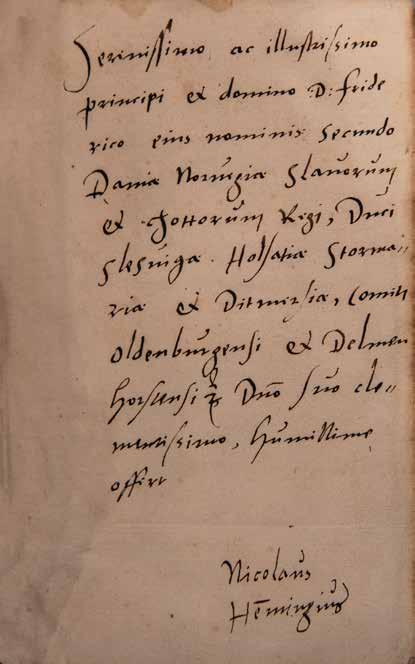 Serenissimo ac illustrissimo
principi et domino D: fride
rico eius nominis secundo
Daniæ Norvegiæ Slavorum
et Gottorum Regi, Duci
Slesvigæ Holsatiæ Storma-
riæ et Ditmersiæ, Comiti
Oldenburgensi et Delmen
horstensi Dnō suo cle-
mentissimo, humillime
offert
Nicolaus
Hem̄ingius